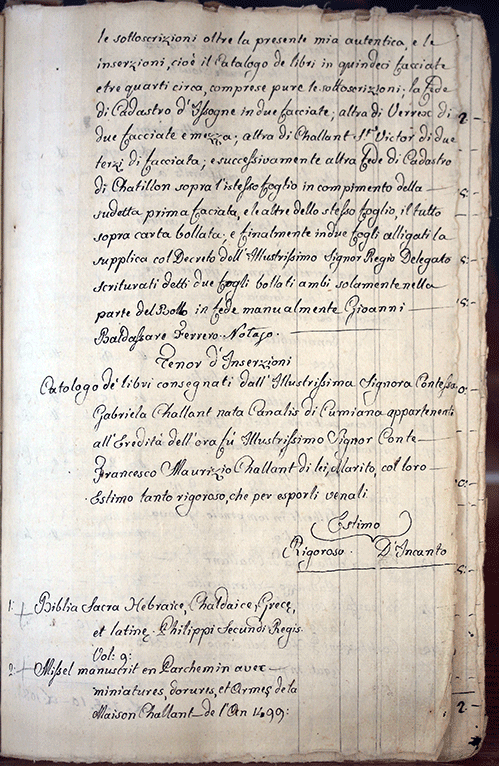 le sottoscrizioni oltre la presente mia autentica, e le
inserzioni, cioè il Catalogo de libri in quindeci facciate
e tre quarti circa, comprese pure le sottoscrizioni; la fede
di Cadastro d'Issogne in due facciate; altra di Verres di
due facciate e mezza; altra di Challant St. Victor di due
terzi di facciata; e successivamente altra fede di Cadastro
di Chatillon sopra l'istesso foglio in compimento della
sudetta prima facciata, e le altre dello stesso foglio, il tutto
sopra carta bollata; e finalmente in due fogli alligati la
supplica col Decreto dell'Illustrissimo Signor Regio Delegato
scritturati detti due fogli bollati ambi solamente nella
parte del Bollo in fede manualmente Gioanni
Baldassare Ferrero Notajo.
Tenor d'Inserzioni
Catologo de' libri consegnati dall'Illustrissima Signora Contessa
Gabriela Challant nata Canalis di Cumiana appartenenti
all'Eredità dell'ora fù Illustrissimo Signor Conte
Francesco Maurizio Challant di lei Marito, col loro
Estimo tanto rigoroso, che per esporli venali
Estimo
Rigoroso. D'Incanto
1: Biblia Sacra Hebraice, Chaldaice, Grece,
et latine Philippi Secundi Regis
Vol: 9:
2: Missel manuscrit en Parchemin avec
miniatures, dorures, et Armes de la
Maison Challant de l'An 1499: